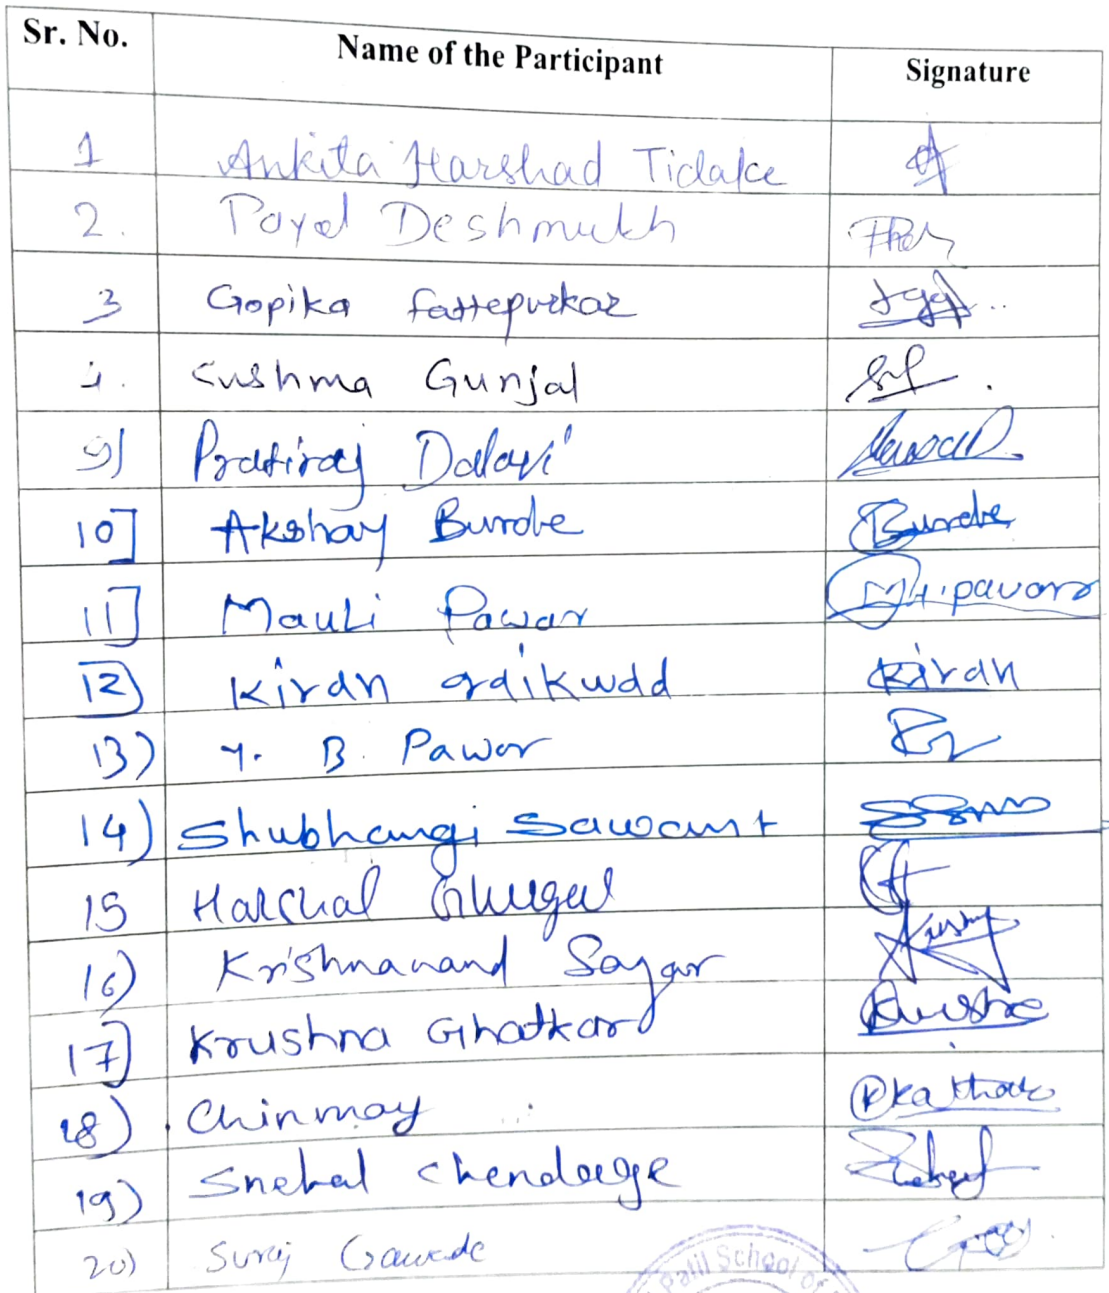 Sr. No. Name of the Participant Signature
1 Ankita Harshad Tidake
2. Payal Deshmukh
3 Gopika fattepurkar
4. Sushma Gunjal
9) Pratiraj Dalavi
10] Akshay Burde Burde
11] Mauli Pawar M.H.pavar
12) Kiran gaikwad Kiran
13) Y. B. Pawar
14) Shubhangi Sawant
15 Harshal Ghugul
16) Krishnanand Sagar
17] Krushna Ghatkar
18) Chinmay
19) Snehal Chendage
20) Suraj Gawade
Patil School of